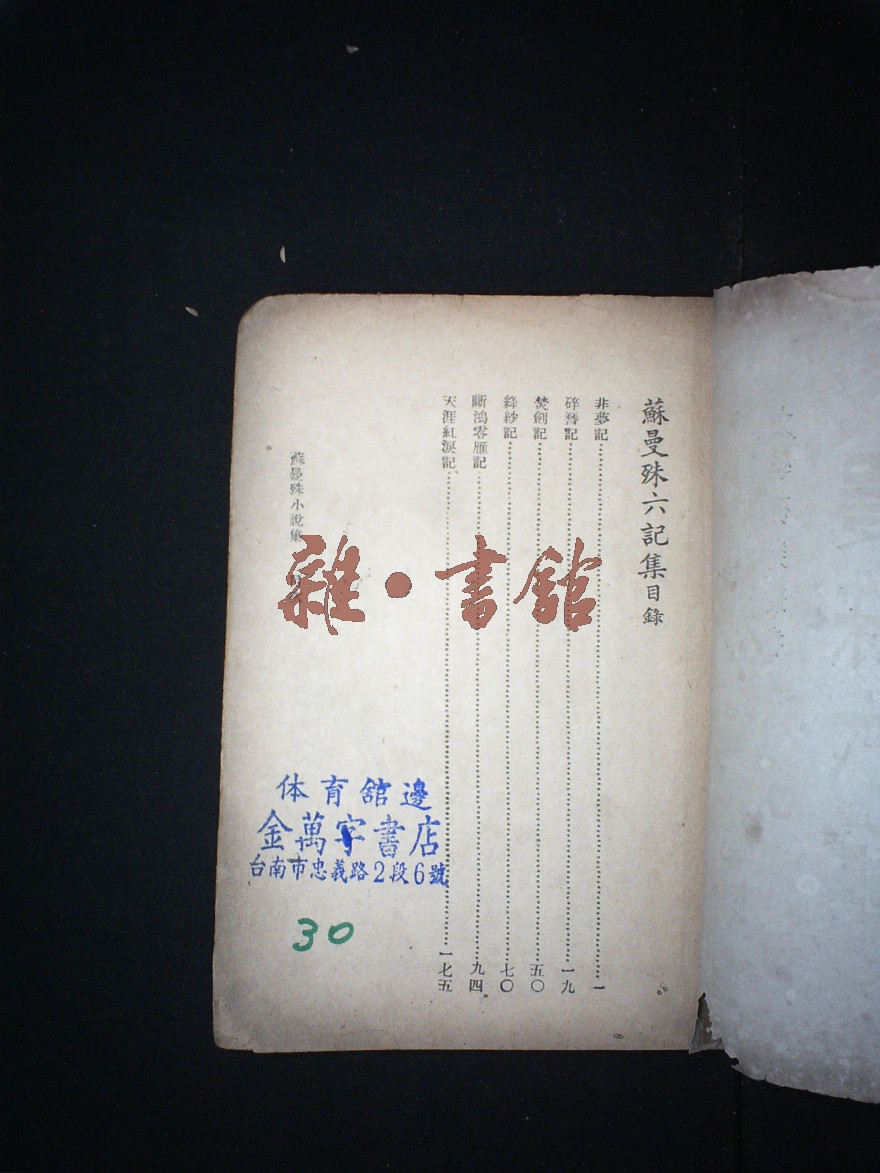 蘇曼殊六記集目錄
非夢記……一
碎簪記……一九
焚劍記……五〇
絳紗記……七〇
斷鴻零雁記……九四
天涯紅淚記……一七五
蘇曼殊小說集
雜·書館
体育舘邊
金萬字書店
台南市忠義路2段6號
30